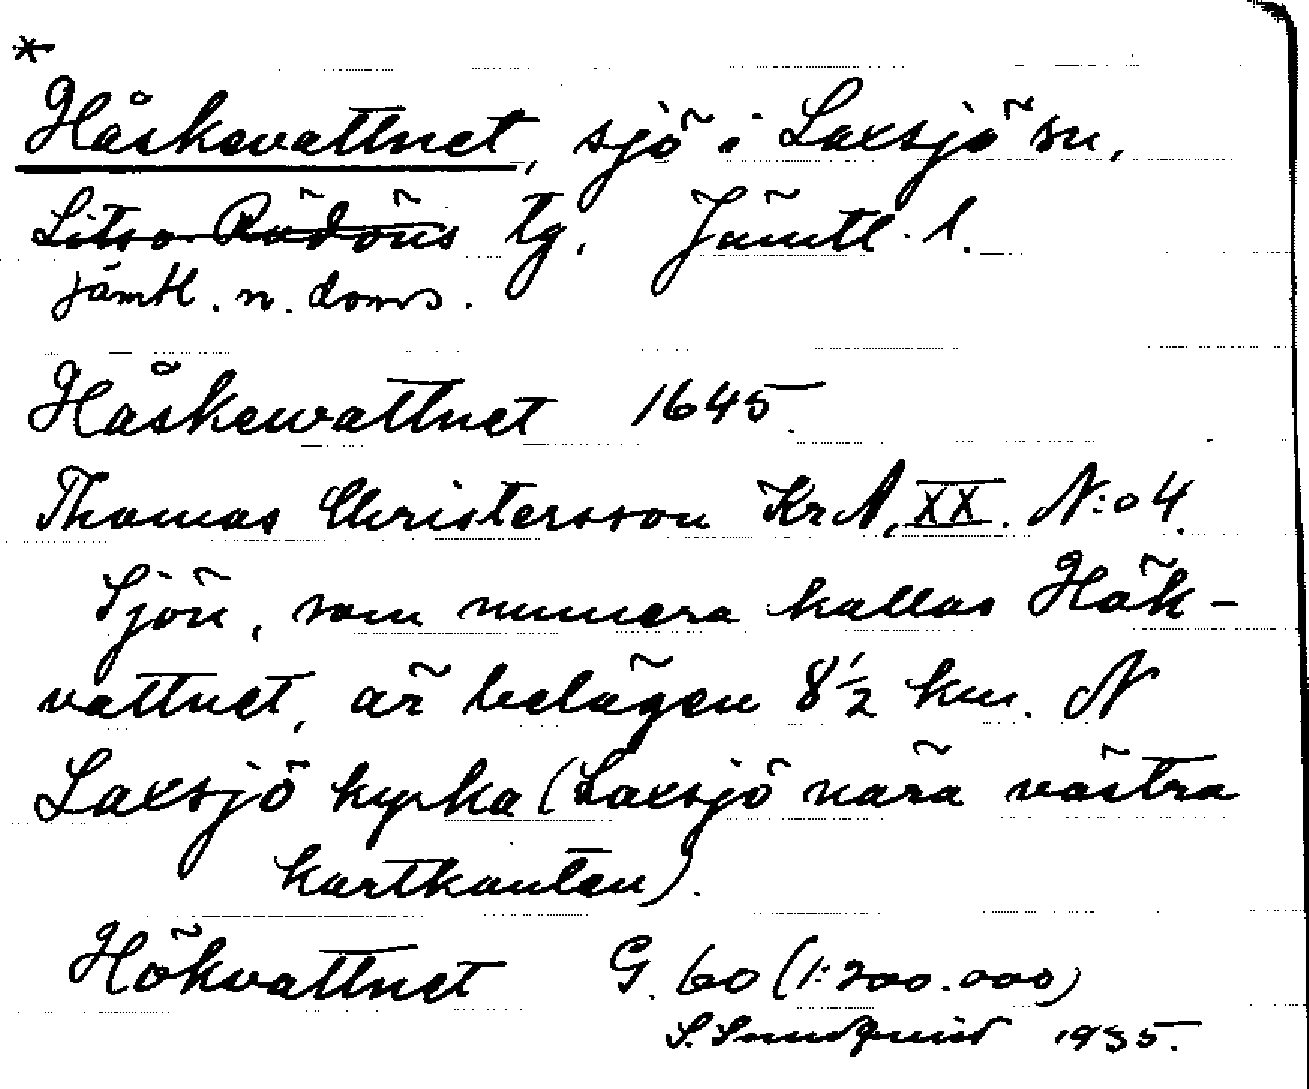 *
Håskevattnet, sjö i Laxsjö sn,
Lits o. Rödöns tg. Jämtl. l.
Jämtl. n. doms.
Håskewattnet 1645.
Thomas Christersson Kr A, XX. N:o 4.
Sjön, som numera kallas Hök-
vattnet, är belägen 8 1/2 km. N
Laxsjö kyrka (Laxsjö nära västra
kartkanten).
Hökvattnet G. 60 (1:200.000)
S. Sundquist 1935.